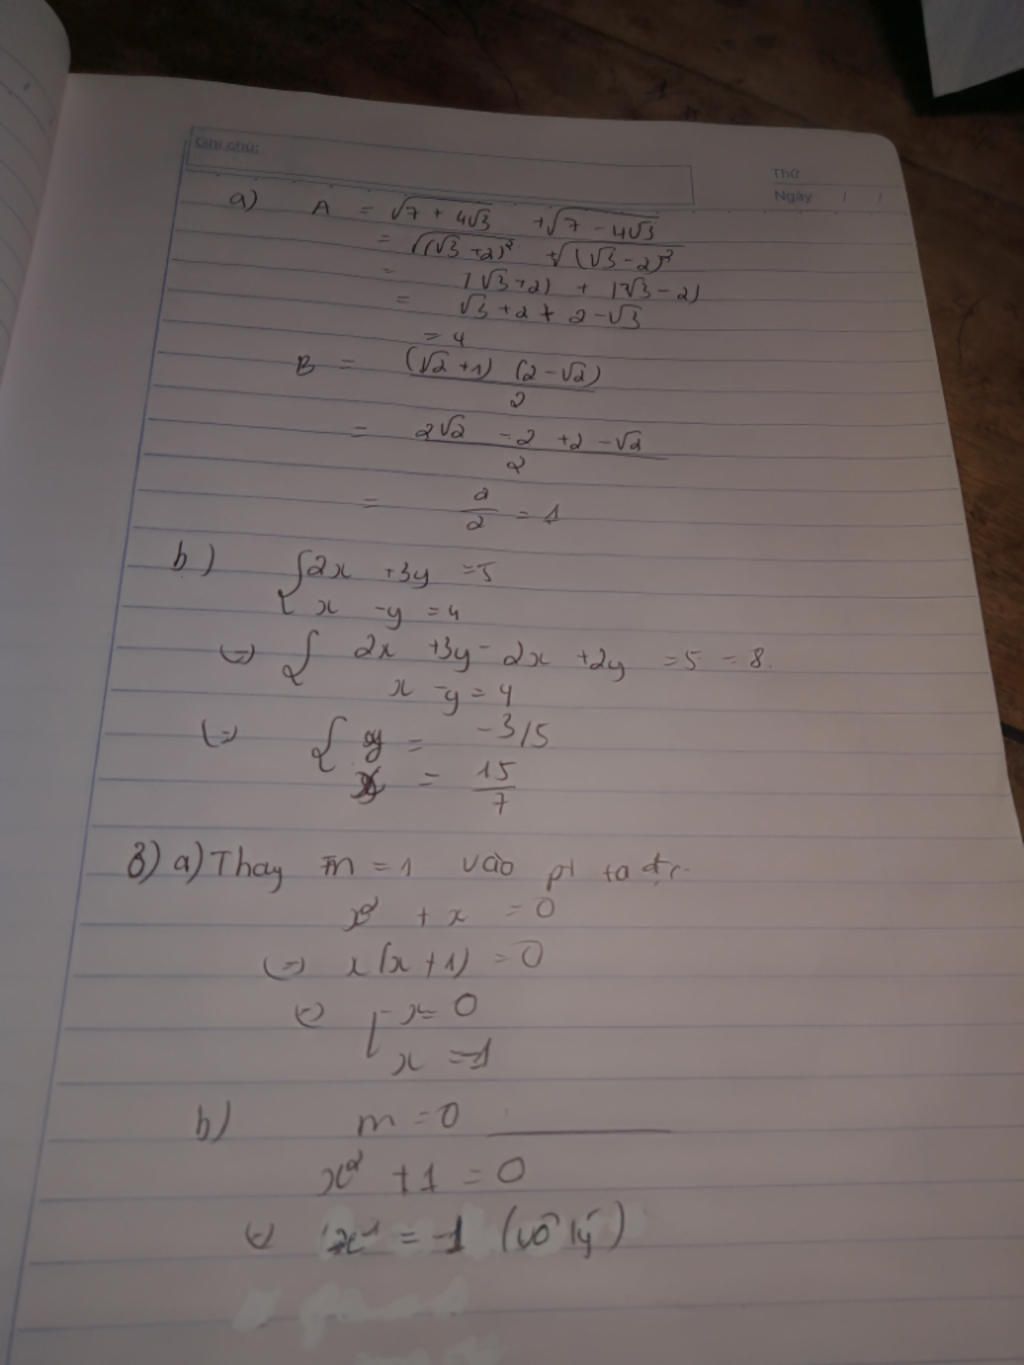 Ghi chú:
Thứ
Ngày / /
a) A = √7 + 4√3 + √7 - 4√3
= √(√3 + 2)² + √(√3 - 2)²
= |√3 + 2| + |√3 - 2|
= √3 + 2 + 2 - √3
= 4
B = (√2 + 1) (2 - √2)
2
= 2√2 - 2 + 2 - √2
2
= 2/2 = 1
b) { 2x + 3y = 5
x - y = 4
(=) { 2x + 3y - 2x + 2y = 5 - 8
x - y = 4
(=) { y = -3/5
= 15/7
3) a) Thay m = 1 vào pt ta đc
x² + x = 0
(=) x(x + 1) = 0
(=) [ x = 0
x = -1
b) m = 0
x² + 1 = 0
(=) x² = -1 (vô lý)